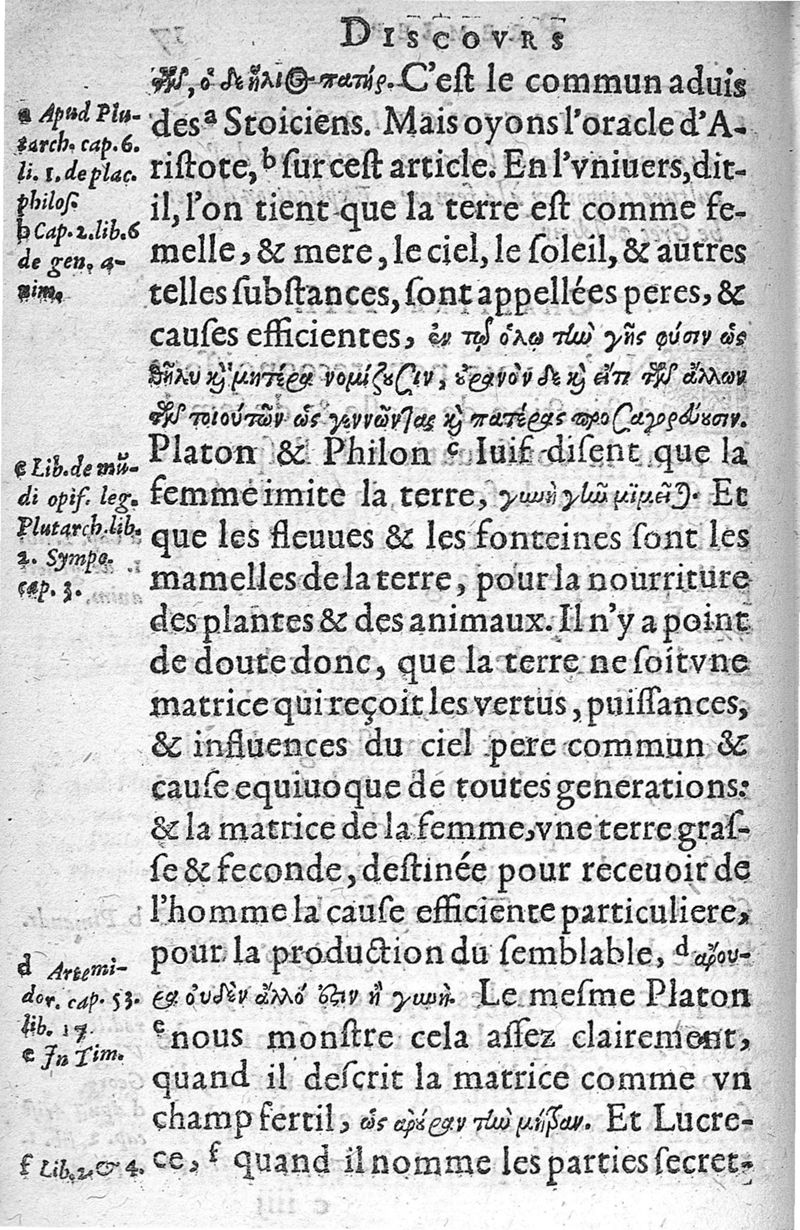 DISCOVRS
τῆς, ὁ δὲ ἥλιος πατήρ. C'eſt le commun aduis
des ᵃ Stoiciens. Mais oyons l'oracle d'A-
riſtote, ᵇ ſur ceſt article. En l'vniuers, dit-
il, l'on tient que la terre eſt comme fe-
melle, & mere, le ciel, le ſoleil, & autres
telles ſubſtances, ſont appellées peres, &
cauſes efficientes, ἐν τῷ ὅλῳ τὴν γῆς φύσιν ὡς
θῆλυ καὶ μητέρα νομίζουσιν, οὐρανὸν δὲ καὶ εἴ τι τῶν ἄλλων
τῶν τοιούτων ὡς γεννῶντας καὶ πατέρας προσαγορεύουσιν.
Platon & Philon ᶜ Iuif diſent que la
femme imite la terre, γυνὴ γῆν μιμεῖται. Et
que les fleuues & les fonteines ſont les
mamelles de la terre, pour la nourriture
des plantes & des animaux. Il n'y a point
de doute donc, que la terre ne ſoit vne
matrice qui reçoit les vertus, puiſſances,
& influences du ciel pere commun &
cauſe equiuoque de toutes generations:
& la matrice de la femme, vne terre graſ-
ſe & feconde, deſtinée pour receuoir de
l'homme la cauſe efficiente particuliere,
pour la production du ſemblable, ᵈ ἄρου-
ρα οὐδὲν ἄλλό ἐστιν ἢ γυνή. Le meſme Platon
ᵉ nous monſtre cela aſſez clairement,
quand il deſcrit la matrice comme vn
champ fertil, ὡς ἄρουραν τὴν μήτραν. Et Lucre-
ce, ᶠ quand il nomme les parties ſecret-
a Apud Plu-
tarch. cap. 6.
li. 1. de plac.
philoſ.
b Cap. 2. lib. 6
de gen. a-
nim.
c Lib. de mū-
di opif. leg.
Plutarch. lib.
2. Sympo.
cap. 3.
d Artemi-
dor. cap. 53.
lib. 17.
e In Tim.
f Lib. 2. & 4.